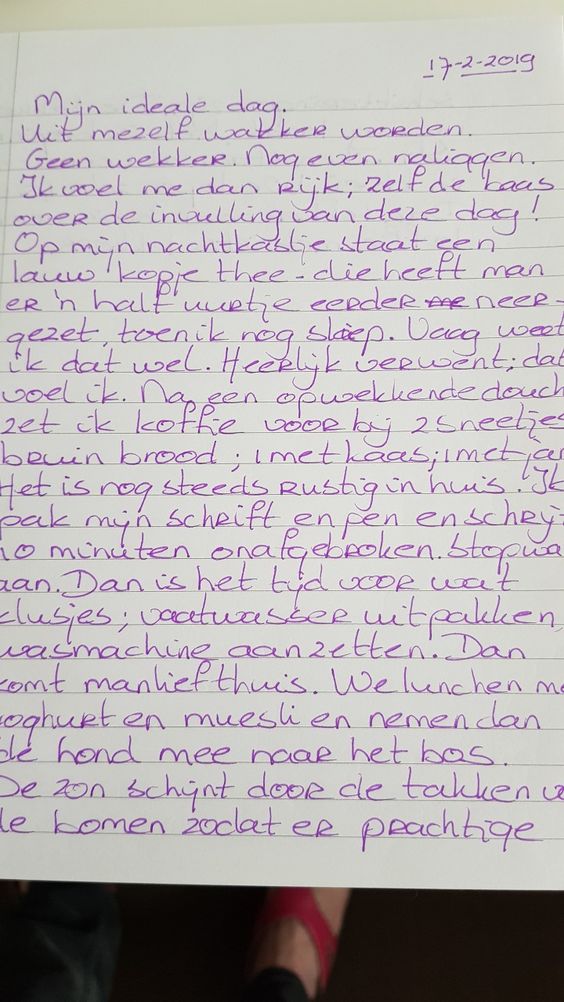 17-2-2019
Mijn ideale dag.
Uit mezelf wakker worden.
Geen wekker. Nog even naliggen.
Ik voel me dan rijk; zelf de baas
over de invulling van deze dag!
Op mijn nachtkastje staat een
lauw kopje thee - die heeft man
er 'n half uurtje eerder neer-
gezet, toen ik nog sliep. Vaag weet
ik dat wel. Heerlijk verwent; dat
voel ik. Na een opwekkende douch
zet ik koffie voor bij 2 sneetjes
bruin brood; 1 met kaas; 1 met ja
Het is nog steeds rustig in huis. Ik
pak mijn schrift en pen en schrij-
10 minuten onafgebroken. Stopwa
aan. Dan is het tijd voor wat
klusjes; vaatwasser uitpakken,
wasmachine aanzetten. Dan
komt manlief thuis. We lunchen me
yoghurt en muesli en nemen dan
de hond mee naar het bos.
De zon schijnt door de takken v
de bomen zodat er prachtige